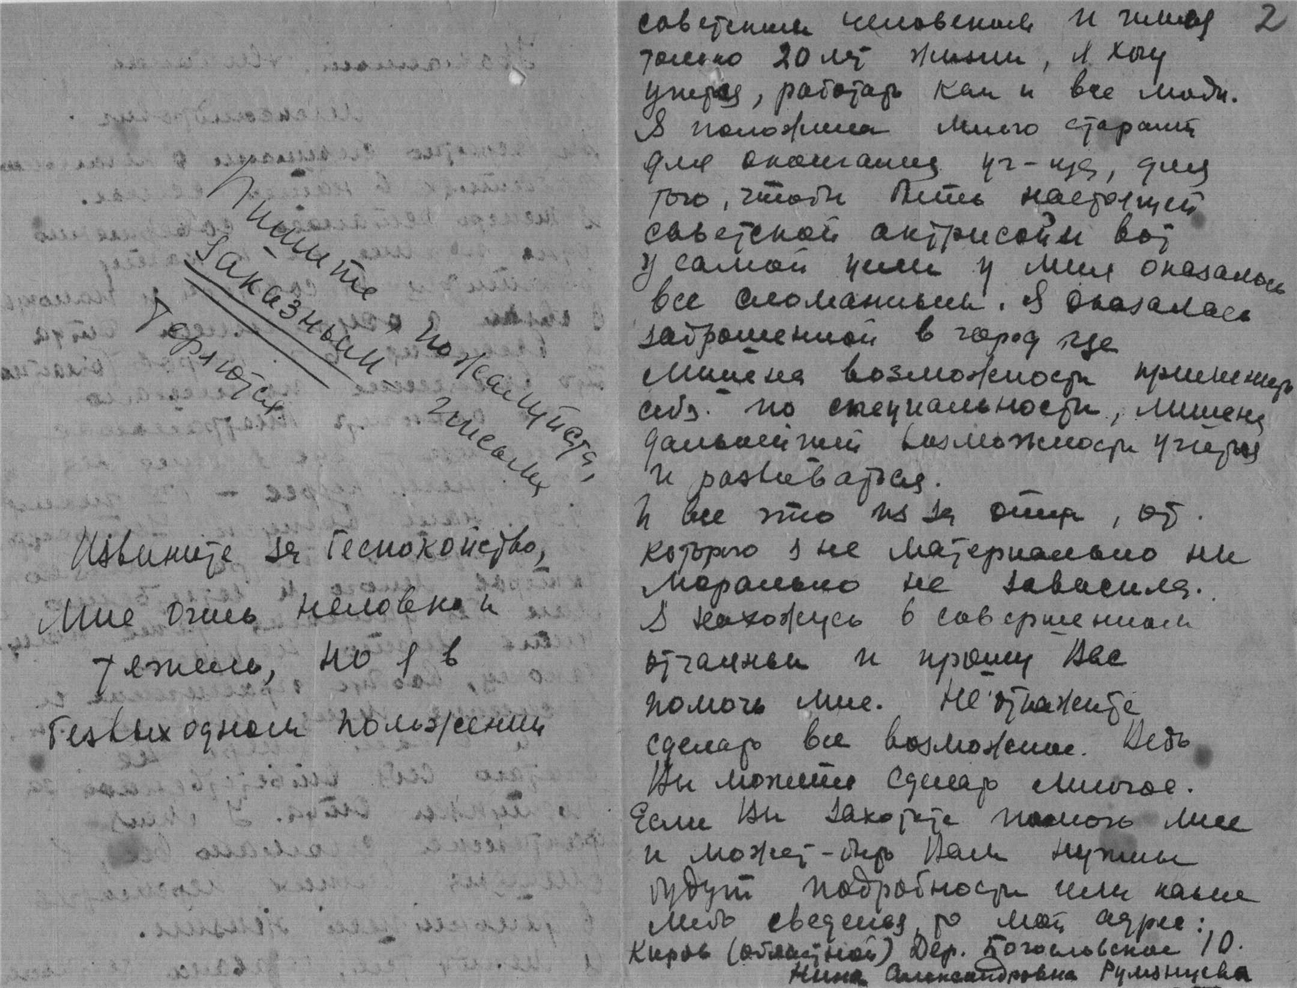 Пишите пожалуйста,
заказным письмом
Теряются
Извините за беспокойство,
Мне очень неловко и
тяжело, но я в
безвыходном положении
2
советским человеком и имея
только 20 лет жизни, я хочу
учится, работать как и все люди.
Я положила много стараний
для окончания уч-ща, для
того, чтобы быть настоящей
советской актрисой и вот
у самой цели у меня оказалось
все сломанным. Я оказалась
заброшенной в город где
лишена возможности применить
себя по специальности, лишена
дальнейшей возможности учится
и развиваться.
И все это из за отца, от
которого я не материально ни
морально не зависила.
Я нахожусь в совершенном
отчаяньи и прошу Вас
помочь мне. Не откажите
сделать все возможное. Ведь
Вы можете сделать многое.
Если Вы захотите помочь мне
и может-быть Вам нужны
будут подробности или какие
либо сведенья, то мой адрес:
Киров (областной) Дер. Богословская 10.
Нина Александровна Румянцева